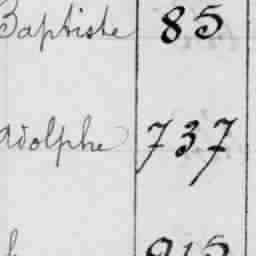 Baptiste 85
Adolphe 737
915